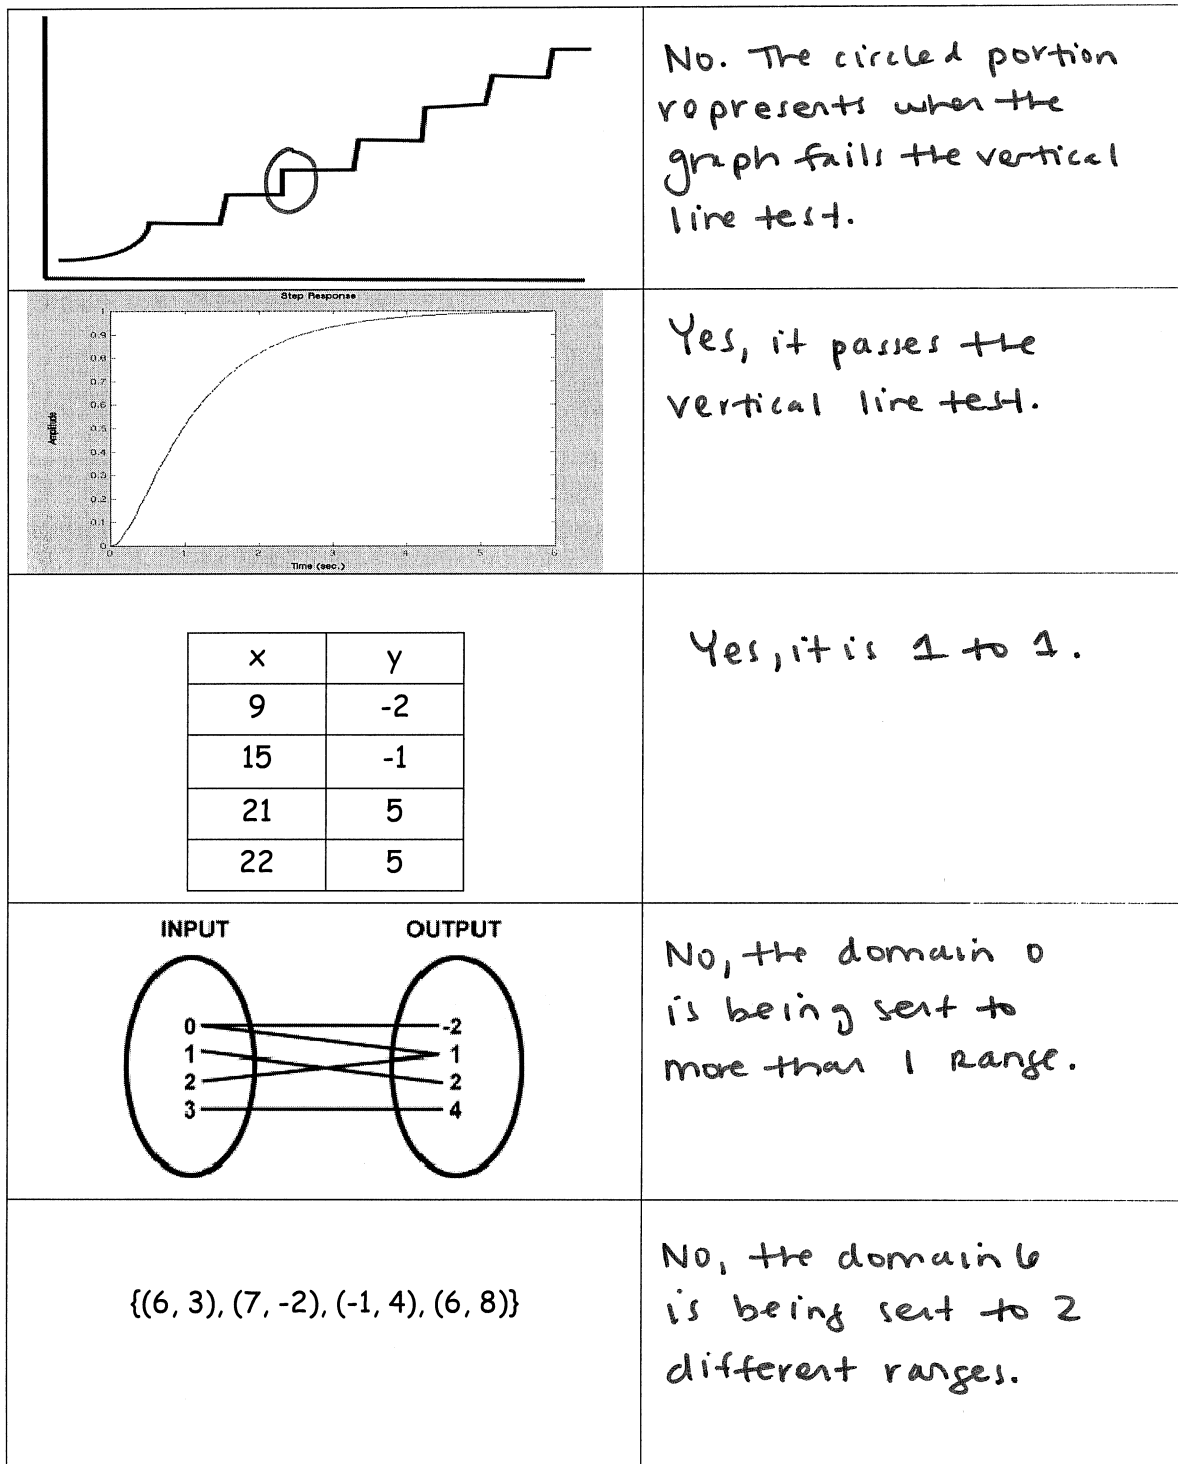 No. The circled portion
represents when the
graph fails the vertical
line test.
Step Response
1
0.9
0.8
0.7
0.6
0.5
0.4
0.3
0.2
0.1
0
Amplitude
0 1 2 3 4 5 6
Time (sec.)
Yes, it passes the
vertical line test.
x y
9 -2
15 -1
21 5
22 5
Yes, it is 1 to 1.
INPUT OUTPUT
0 -2
1 1
2 2
3 4
No, the domain 0
is being sent to
more than 1 Range.
{(6, 3), (7, -2), (-1, 4), (6, 8)}
No, the domain 6
is being sent to 2
different ranges.